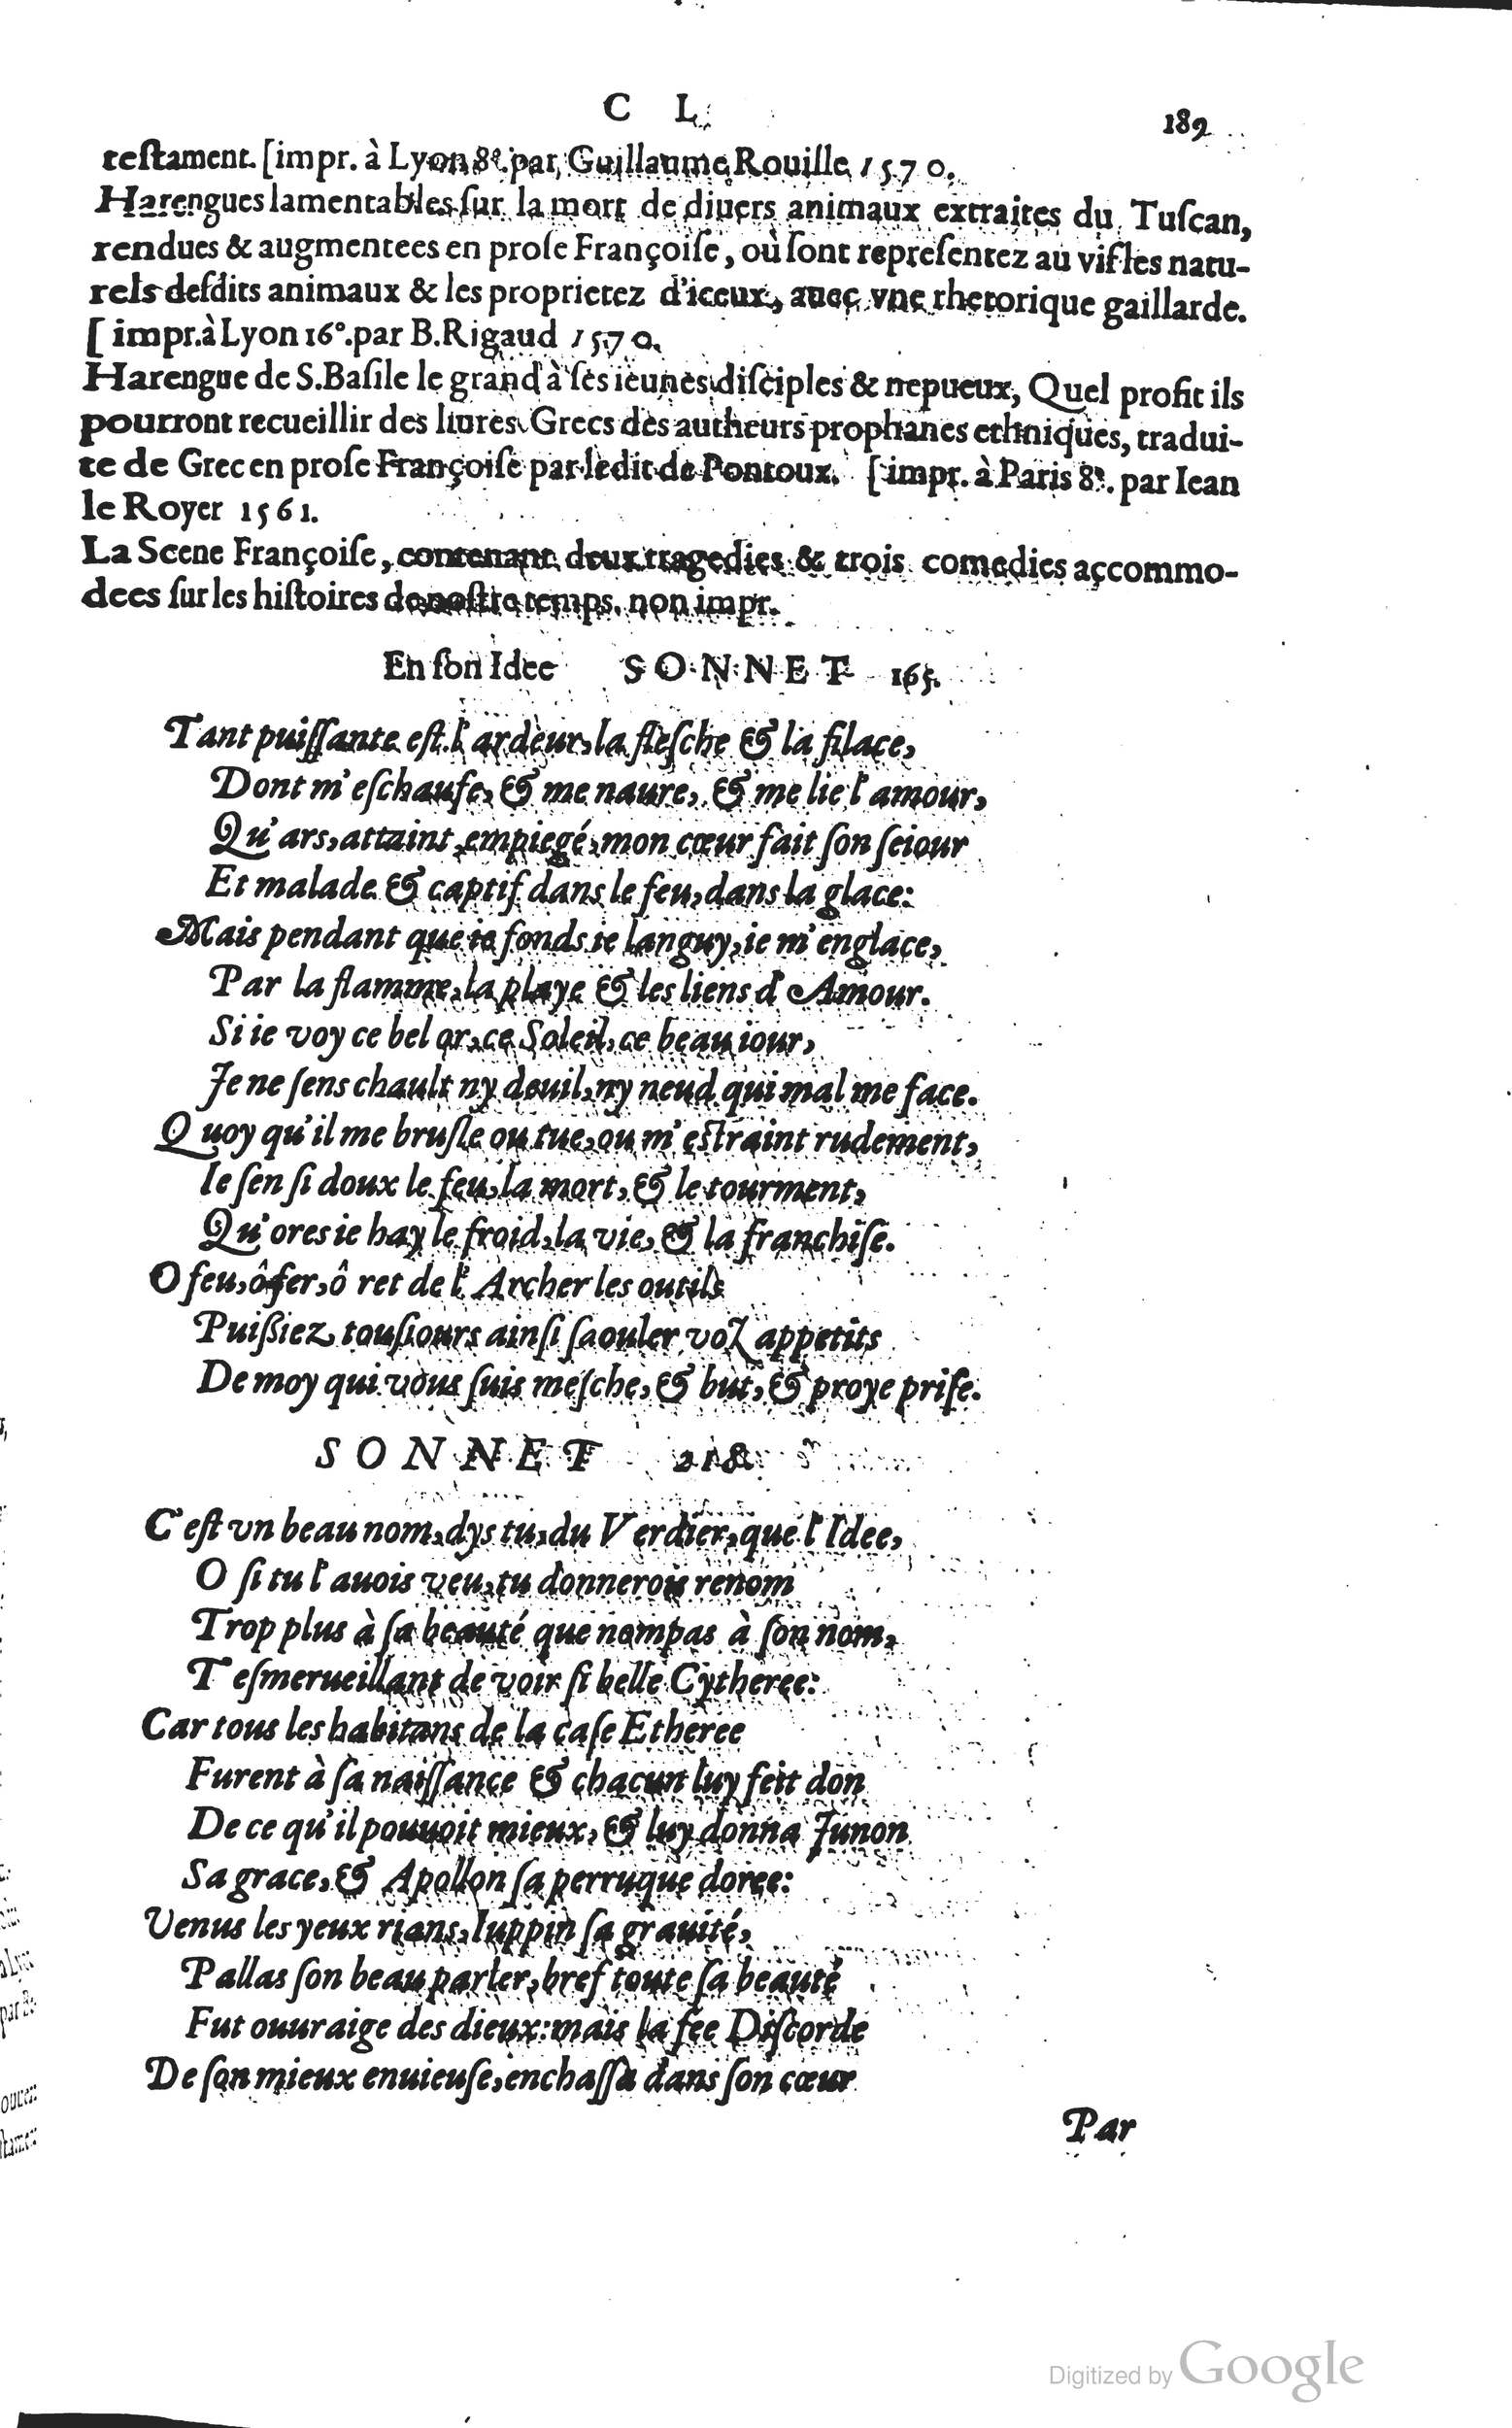 C L
189
teſtament. [impr. à Lyon 8º. par Guillaume Rouille 1570.
Harengues lamentables ſur la mort de diuers animaux extraites du Tuſcan,
rendues & augmentees en proſe Françoiſe, où ſont repreſentez au vif les natu-
rels deſdits animaux & les proprietez d'iceux, auec vne rhetorique gaillarde.
[impr. à Lyon 16º. par B. Rigaud 1570.
Harengue de S. Baſile le grand à ſes ieunes diſciples & nepueux, Quel profit ils
pourront recueillir des liures Grecs des autheurs prophanes ethniques, tradui-
te de Grec en proſe Françoiſe par ledit de Pontoux. [impr. à Paris 8º. par Iean
le Royer 1561.
La Scene Françoiſe, contenant deux tragedies & trois comedies accommo-
dees ſur les hiſtoires de noſtre temps. non impr.
En ſon Idee SONNET 165.
Tant puiſſante eſt l'ardeur, la fleſche & la filace,
Dont m'eſchaufe, & me naure, & me lie l'amour,
Qu'ars, attaint, empiegé, mon cœur fait ſon ſeiour
Et malade & captif dans le feu, dans la glace:
Mais pendant que ie fonds ie languy, ie m'englace,
Par la flamme, la playe & les liens d'Amour.
Si ie voy ce bel or, ce Soleil, ce beau iour,
Je ne ſens chault ny deuil, ny neud qui mal me face.
Quoy qu'il me bruſle ou tue, ou m'eſtraint rudement,
Ie ſen ſi doux le feu, la mort, & le tourment,
Qu'ores ie hay le froid, la vie, & la franchiſe.
O feu, ô fer, ô ret de l'Archer les outils
Puißiez touſiours ainſi ſaouler voz appetits
De moy qui vous ſuis meſche, & but, & proye priſe.
SONNET 218.
C'eſt vn beau nom, dys tu, du Verdier, que l'Idee,
O ſi tu l'auois veu, tu donnerois renom
Trop plus à ſa beauté que nompas à ſon nom,
T'eſmerueillant de voir ſi belle Cytheree:
Car tous les habitans de la caſe Etheree
Furent à ſa naiſſance & chacun luy feit don
De ce qu'il pouuoit mieux, & luy donna Junon
Sa grace, & Apollon ſa perruque doree:
Venus les yeux rians, Iuppin ſa grauité,
Pallas ſon beau parler, bref toute ſa beauté
Fut ouuraige des dieux: mais la fee Diſcorde
De ſon mieux enuieuſe, enchaſſa dans ſon cœur
Par
Digitized by Google